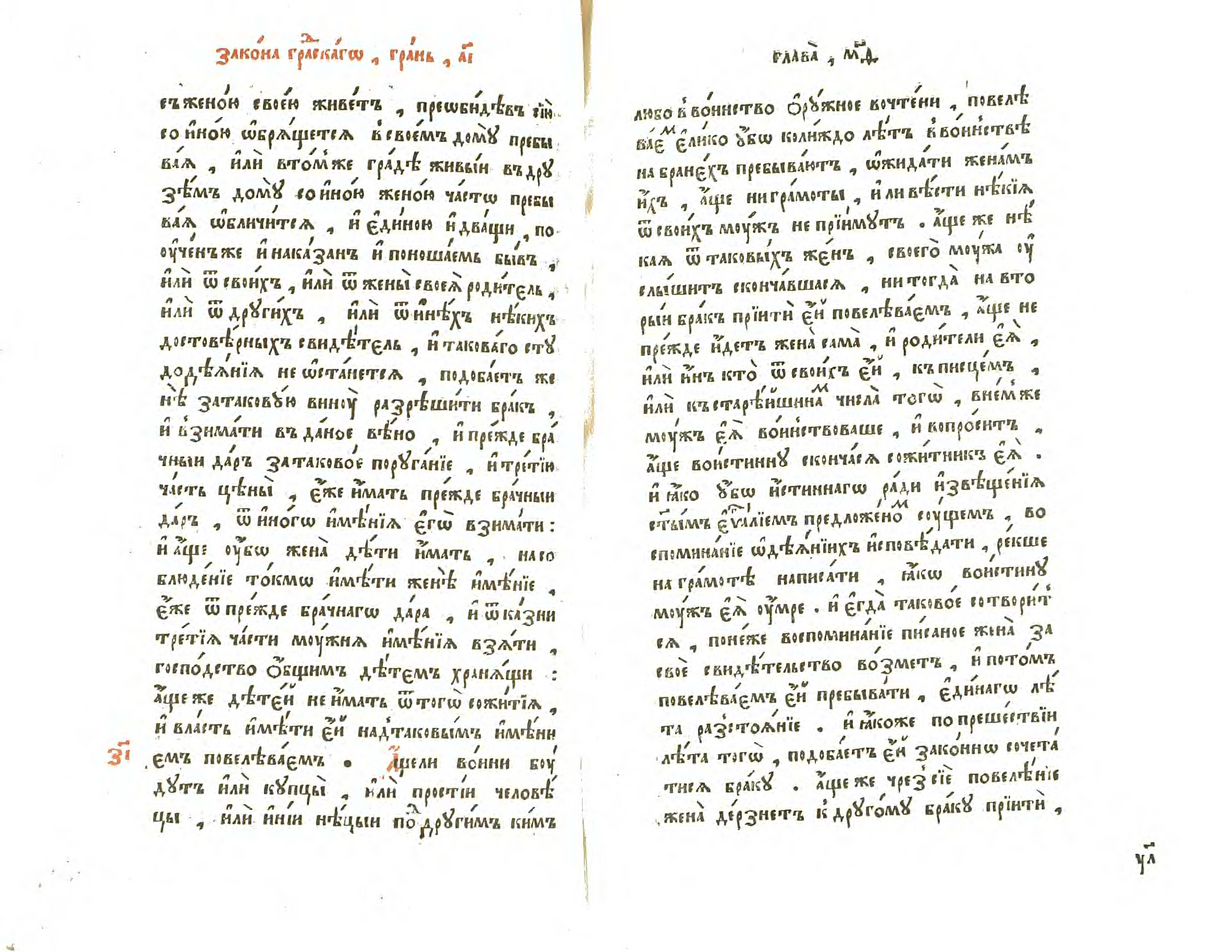 Зако́на гра́дскагѡ , гра́нь , а҃і
съжено́ю свое́ю живе́тъ , преѡби́дѣвъ сїю̀
со и҆но́ю ѡ҆бря́щется в̾свое́мъ дому̀ пребы
ва́я , и҆лѝ вто́мже гра́дѣ живы́и въдру
зѣ́мъ дому̀ со и҆но́ю жено́ю ча́стѡ пребы
ва́я ѡ҆бличи́тся , и҆ є҆ди́ною и҆ два́щи , по
оу҆че́нъже и҆ нака́занъ и҆ поноша́емь бы́въ ,
и҆лѝ ѿ свои́хъ , и҆лѝ ѿ жены̀ своея̀ роди́тель ,
и҆лѝ ѿ други́хъ , и҆лѝ ѿ и҆нѣ́хъ нѣ́кихъ
достовѣ́рныхъ свидѣ́тель , и҆ такова́го сту
додѣя́нїя не ѡ҆ста́нется , подоба́етъ же
нѣ̀ затакову́ю вину̀ разрѣши́ти бра́къ ,
и҆ взима́ти въ да́ное вѣ́но , и҆ пре́жде бра́
чныи да́ръ затаково́е поруга́нїе , и҆ тре́тїю
ча́сть цѣны̀ , є҆́же и҆́мать пре́жде бра́чныи
да́ръ , ѿ и҆но́гѡ и҆мѣ́нїя є҆гѡ̀ взима́ти :
и҆ а҆́ще оу҆́бѡ жена̀ дѣ́ти и҆́мать , на со
блюде́нїе то́кмѡ и҆мѣ́ти женѣ̀ и҆мѣ́нїе ,
є҆́же ѿ пре́жде бра́чнагѡ да́ра , и҆ ѿ ка́зни
тре́тїя ча́сти мо́ужня и҆мѣ́нїя взя́ти ,
госпо́дство ѻ҆́бщимъ дѣ́темъ храня́щи :
а҆́ще же дѣте́й не и҆́мать ѿ тогѡ̀ сожи́тїя ,
и҆ вла́сть и҆мѣ́ти є҆́й над̾таковы́мъ и҆мѣ́ни
з҃і
емъ повелѣва́емъ . А҆́щели во́ини боу́
дутъ и҆лѝ купцы̀ , и҆лѝ прості́и человѣ́
цы , и҆лѝ и҆ні́и нѣ́цыи под̾ други́мъ ки́мъ
глава̀ , м҃д
любо в̾ во́инство ѻ҆ру́жное вочте́ни , повелѣ
ва́емъ є҆ли́ко у҆́бѡ коли́ждо лѣ́тъ в̾во́инствѣ
на бране́хъ пребыва́ютъ , ѡ҆жида́ти жена́мъ
и҆́хъ , а҆́ще ни гра́моты , и҆ли вѣ́сти нѣ́кїя
ѿ свои́хъ моу́жъ не прїи́мутъ . а҆́ще же нѣ́
кая ѿ таковы́хъ же́нъ , своего̀ моу́жа оу҆
слы́шитъ сконча́вшася , ни тогда̀ на вто
ры́и бра́къ прїитѝ є҆́й повелѣва́емъ , а҆́ще не
пре́жде и҆́детъ жена̀ сама̀ , и҆ роди́тели є҆я̀ ,
и҆лѝ и҆́нъ кто̀ ѿ свои́хъ є҆́й , къ писце́мъ ,
и҆лѝ къ старѣ́йшинамъ числа̀ тогѡ̀ , вне́мже
моу́жъ є҆я̀ во́инствоваше , и҆ вопро́ситъ ,
а҆́ще вои́стинну сконча́ся сожи́тникъ є҆я̀ .
и҆ ꙗ҆́ко у҆́бѡ и҆́стиннагѡ ра́ди и҆звѣще́нїя
ст҃ы́мъ є҆ѵ҃лїемъ предложе́номъ су́щемъ , во
спомина́нїе ѡ҆дѣя́нїихъ и҆сповѣ́дати , ре́кше
на гра́мотѣ написа́ти , ꙗ҆́кѡ вои́стину
моу́жъ є҆я̀ оу҆́мре . и҆ є҆гда̀ таково́е сотвори́т
ся , поне́же воспомина́нїе пи́саное жена̀ за
своѐ свидѣ́тельство во́зметъ , и҆ пото́мъ
повелѣва́емъ є҆́й пребыва́ти , є҆ди́нагѡ лѣ́
та разстоя́нїе . и҆ ꙗ҆́коже по преше́ствїи
лѣ́та тогѡ̀ , подоба́етъ є҆́й зако́ннѡ сочета́
тися бра́ку . а҆́ще же чрез̾ сїѐ повелѣ́нїе
жена̀ де́рзнетъ к̾ друго́му бра́ку прїитѝ ,
ул҃